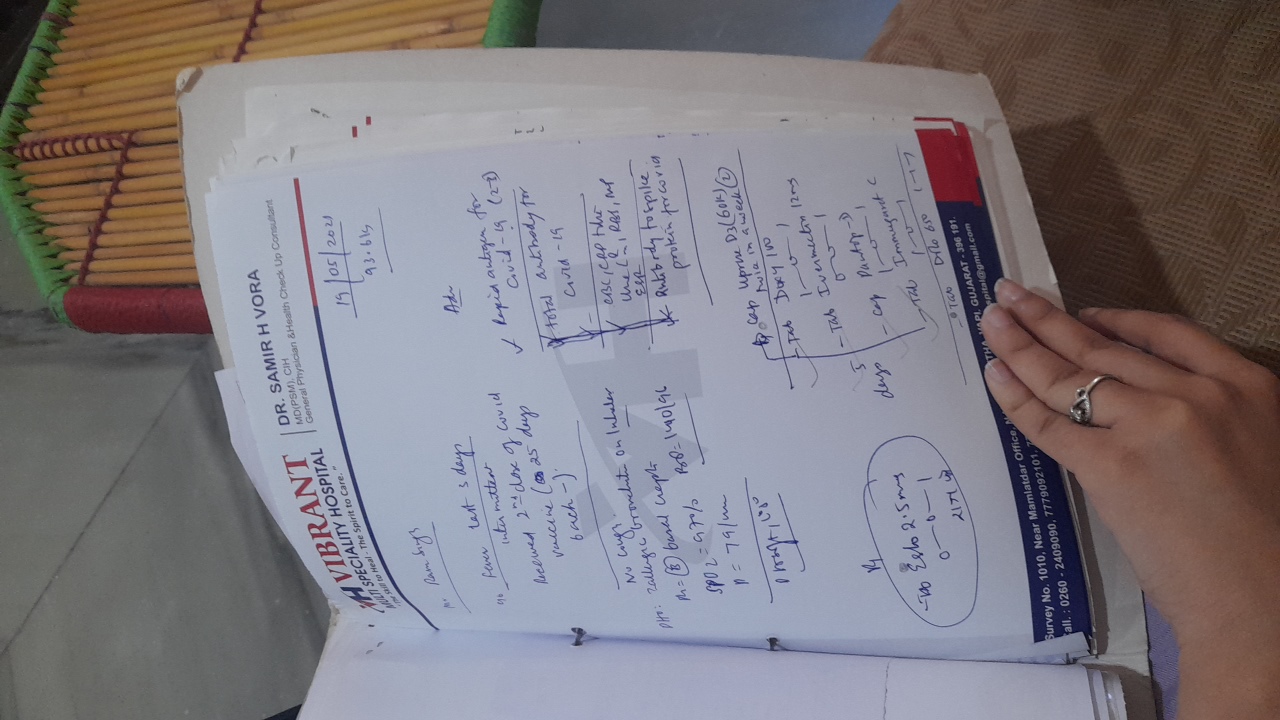 VH VIBRANT
MULTI SPECIALITY HOSPITAL
"The Skill to Heal - The Spirit to Care."
DR. SAMIR H VORA
MD(PSM), CIH
General Physician &Health Check Up Consultant
19/05/2021
93.6kg
Mr. Ram Singh
Fever last 3 days
intermittent
Received 2nd dose of covid
vaccine (25 days
back-)
No cough.
allergic bronchitis on Inhaler
(B) basal crepts
SPO2 = 97%
BP = 140/96
P = 79/min
Adv
Rapid antigen for
Covid-19 (2-3)
total antibody for
Covid-19
CBC, CRP
Urine, RBS, MP
ESR
Antibody to spike
protein for covid
Cap Uprise D3 (60K)
twice in a week (2)
Tab Doxy 100
1-0-1
- Tab Ivermectin 12mg
0-0-1
5
days
- Cap Pantop-D
1-0-1
- Tab C
1-0-1
- Tab Dolo 650 1-1-1
Rx
2.5mg
0-0-1
VH
Survey No. 1010, Near Mamlatdar Office, VAPI, GUJARAT - 396 191.
Call. : 0260 - 2409090, 7779092101, spital@gmail.com